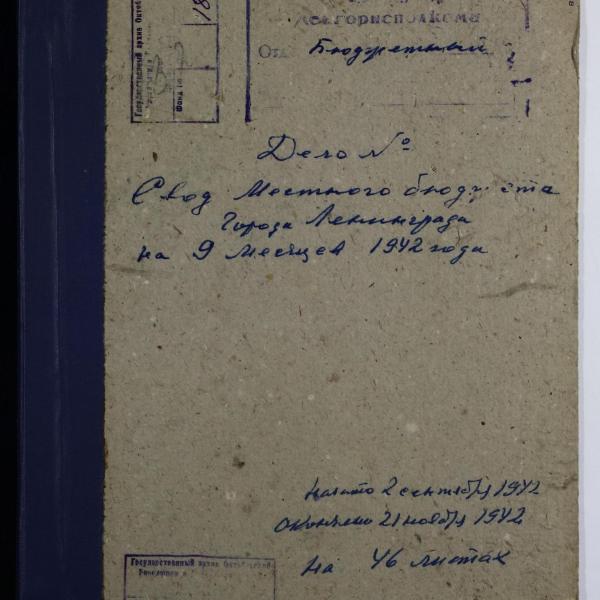 Государственный архив Октяб
Фонд
18
Ленгорисполкома
Отд. Бюджетный
Дело №
Свод Местного бюджета
Города Ленинграда
на 9 месяцев 1942 года
Начато 2 сентября 1942
окончено 21 ноября 1942
на 46 листах
Государственный архив Октябрьской
Революции